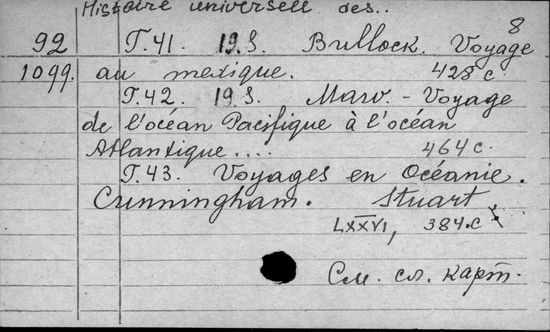 Histoire universell des..
8
92 Т.41. 19 S. Bullock. Voyage
1099. au mexique. 428 с.
Т.42. 19 S. Marv. - Voyage
de l'océan Pacifique à l'océan
Atlantique.... 464 с.
Т.43. Voyages en Océanie.
Cunningham. Stuart
LXXVI, 384.с
См. сл. карт.